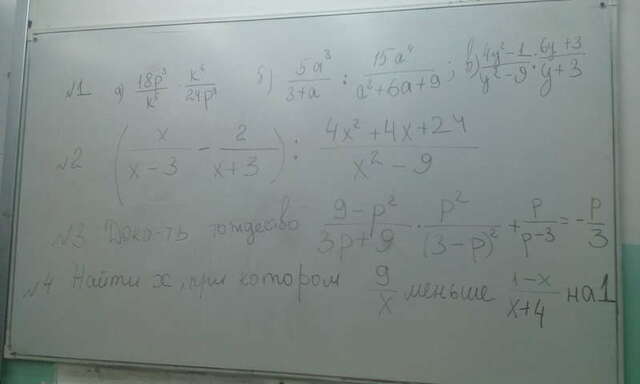 №1 а) 18p³/k⁵ · k⁴/24p⁹ б) 5a³/(3+a) : 15a⁴/(a²+6a+9) ; в) (4y²-1)/(y²-9) : (6y+3)/(y+3)
№2 (x/(x-3) - 2/(x+3)) : (4x²+4x+24)/(x²-9)
№3 Док-ть тождество (9-p²)/(3p+9) · p²/(3-p)² + p/(p-3) = -p/3
№4 Найти x, при котором 9/x меньше (1-x)/(x+4) на 1